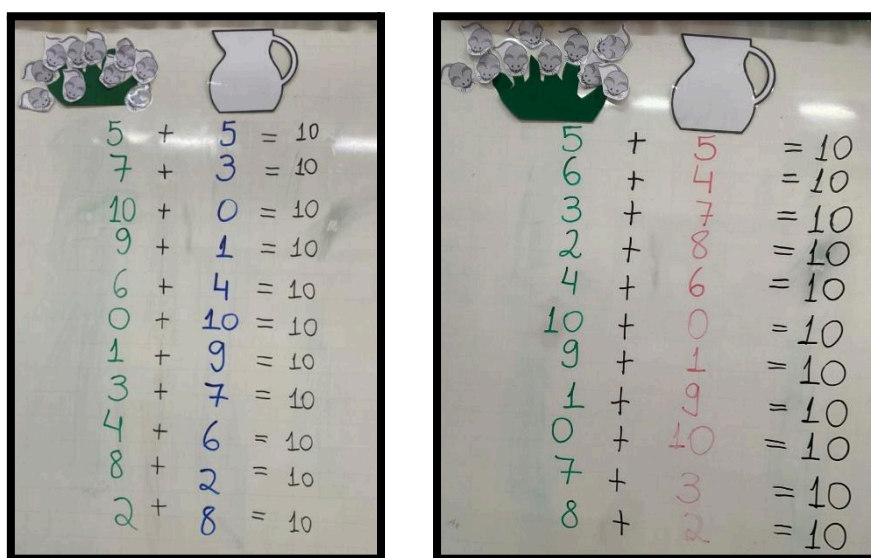 5 + 5 = 10
7 + 3 = 10
10 + 0 = 10
9 + 1 = 10
6 + 4 = 10
0 + 10 = 10
1 + 9 = 10
3 + 7 = 10
4 + 6 = 10
8 + 2 = 10
2 + 8 = 10
5 + 5 = 10
6 + 4 = 10
3 + 7 = 10
2 + 8 = 10
4 + 6 = 10
10 + 0 = 10
9 + 1 = 10
1 + 9 = 10
0 + 10 = 10
7 + 3 = 10
8 + 2 = 10